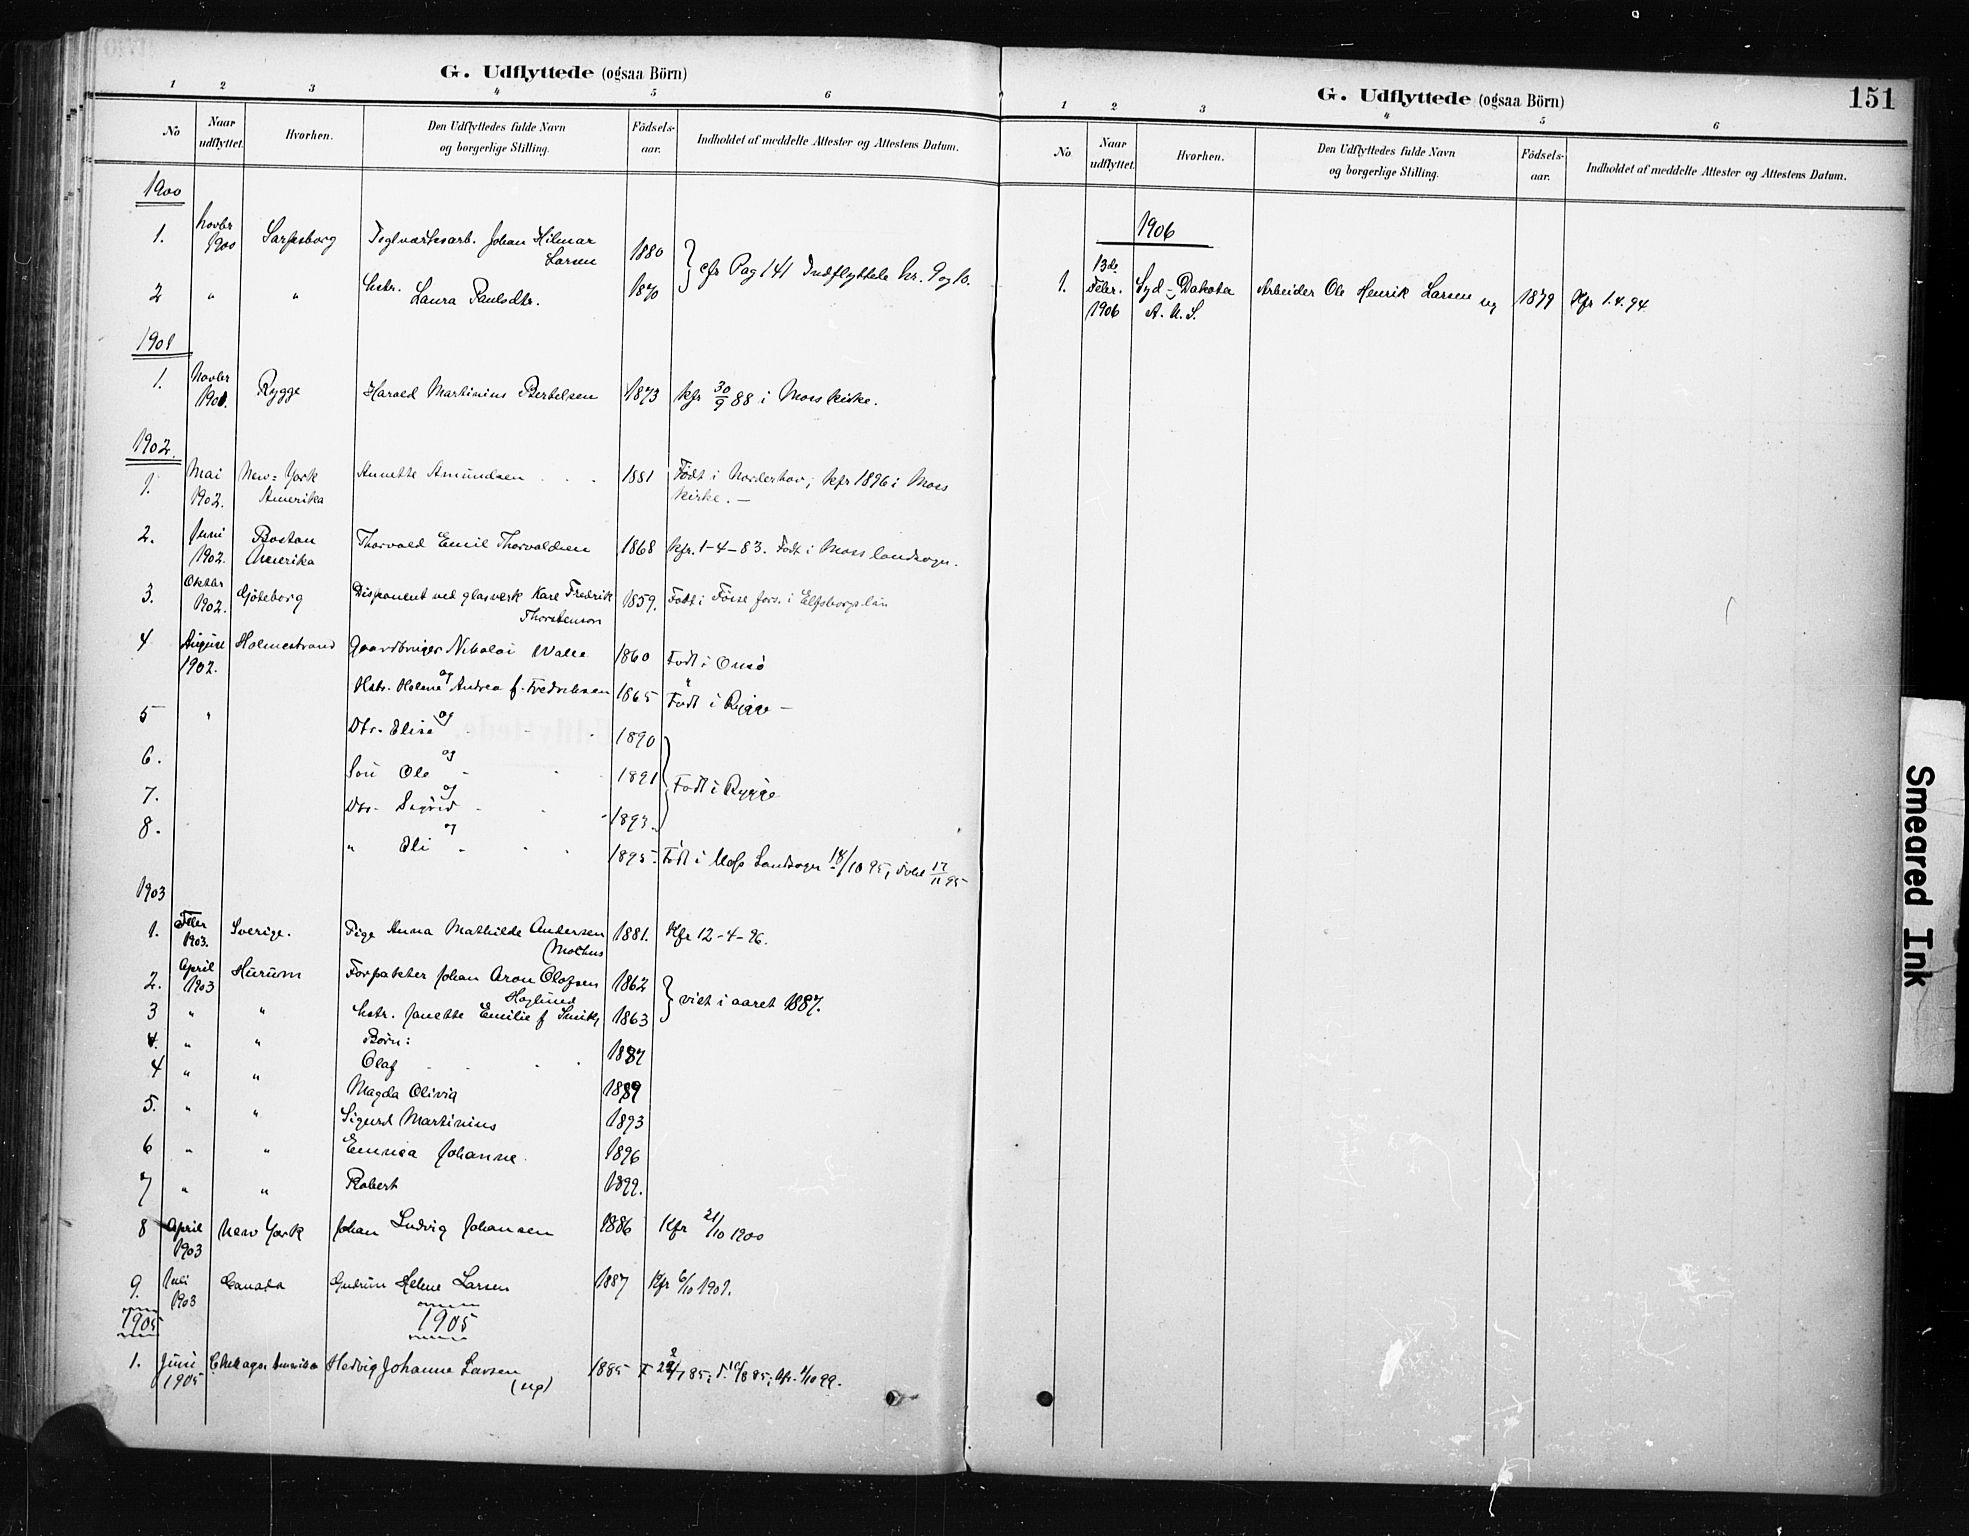 G. Udflyttede (ogsaa Börn)
1 2 3 4 5 6
No Naar udflyttet. Hvorhen. Den Udflyttedes fulde Navn og borgerlige Stilling. Födsels-aar. Indholdet af meddelte Attester og Attestens Datum.
1900
1. Novbr 1900 Sarpsborg Teglværksarb. Johan Hilmar Larsen 1880 } cfr Pag 141 Indflyttede Nr. 9 og 10.
2 " " Hstr. Laura Paulsdtr. 1870
1901
1. Novbr 1901. Rygge Harald Martinius Bertelsen 1873 Kfr 30/9 88 i Moss kirke.
1902.
1. Mai 1902. New=York Amerika Annette Amundsen 1881 Födt i Norderhov; Kfr 1896 i Moss kirke. —
2. Juni 1902. Boston Amerika Thorvald Emil Thorvaldsen 1868 Kfr. 1-4-83. Födt i Moss landsogn.
3. Oktbr 1902. Göteborg Disponent ved glasverk Karl Fredrik Thorstenson 1859. Födt i Förse fors. i Elfsborgs län
4 August 1902. Holmestrand Gaardbruger Nikolai Walle 1860 Født i Onsø
Hstr. Helene Andrea f. Fredriksen 1865 Født i Rygge —
5 " Dtr. Elise og 1890
6. Sön Ole og 1891 } Født i Rygge
7. Dtr. Sigrid og 1893.
8. " Eli og 1895. Født i Moss Landsogn 18/10 95, døbt 17/11 95
1903
1. Feber 1903. Sverige. Pige Anna Mathilde Andersen (Molhus 1881. Kfr 12-4-96.
2. April 1903 Hurum Forpakter Johan Aron Olofsen Hoglund 1862 } viet i aaret 1887.
3 " " Hstr. Janette Emilie f Smith 1863
4. " " Børn: Olaf 1887
4 " " Magda Olivia 1889
5. " " Sigurd Martinius 1893
6 " " Emma Johanne. 1896
7 " " Robert 1899.
8 April 1903 New York Johan Ludvig Johansen 1886 Kfr 21/10 1900
9. Juli 1903 Canada Gudrun Helene Larsen 1887 Kfr 6/10 1901.
1905 1905
1. Juni 1905 Chicago Amerika Hedvig Johanne Larsen (ug) 1885
G. Udflyttede (ogsaa Börn) 151
1 2 3 4 5 6
No. Naar udflyttet. Hvorhen. Den Udflyttedes fulde Navn og borgerlige Stilling. Födsels-aar. Indholdet af meddelte Attester og Attestens Datum.
1906
1. 13de Feber. 1906 Syd-Dakota A. U. S. Arbeider Ole Henrik Larsen ug 1879 Kfr 1.4.94
Smeared Ink